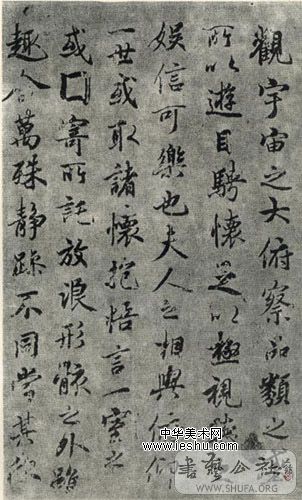 觀宇宙之大俯察品類之
所以遊目騁懷足以極視聽
娛信可樂也夫人之相與俯仰
一世或取諸懷抱悟言一室之
或囗寄所託放浪形骸之外雖
趣舍萬殊靜躁不同當其欣
中华美术网
www.ieshu.com
書藝公社
WWW.SHUFA.ORG